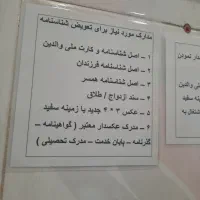 مدارک مورد نیاز برای تعویض شناسنامه
۱ – اصل شناسنامه و کارت ملی والدین
۲ – اصل شناسنامه فرزندان
۳ – اصل شناسنامه همسر
۴ – سند ازدواج / طلاق
۵ – عکس ۴*۳ جدید با زمینه سفید
۶ – مدرک عکسدار معتبر ( گواهینامه –
گذرنامه – پایان خدمت – مدرک تحصیلی )
دار نمودن
والدین
سفید